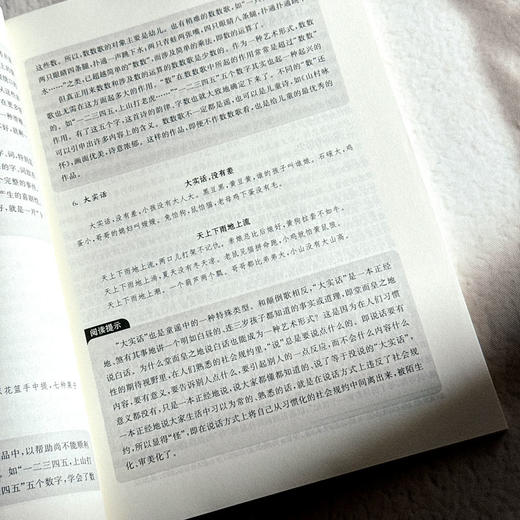 这些数。所以,数数歌的对象主要是幼儿。也有稍难的数数歌,如“一只青蛙一张嘴,
两只眼睛四条腿,扑通一声跳下水,两只青蛙两张嘴,四只眼睛八条腿,扑通扑通跳下
水……”之类,已超越简单的“数数”,而涉及简单的乘法,即数的运算。
但真正用来数数和涉及数的运算的数数歌是少数的。作为一种艺术形式,数数
歌也无需在这方面起多大的作用。“数”在数数歌中所起的作用常常是超过“数数”
的。如“一二三四五,上山打老虎……”“一二三四五”五个数字其实也起一种起兴的
作用。有了这五个字,这首诗的韵律、字数也就大致地确定下来了。不同的“数”还
可以引申出许多内容上的含义。数数歌不一定都是谣,也可以是儿童诗,如《山村咏
怀》,画面优美,诗意浓郁。这样的作品,即便不作数数歌看,也是给儿童的最优秀的
作品。
6. 大实话
大实话,没有差
大实话,没有差,小孩没有大人大。黑豆黑,黄豆黄,谁的孩子叫谁娘。石磙大,鸡
蛋小,哥哥的媳妇叫嫂嫂。兔怕狗,鼠怕猫,老母鸡下蛋没有毛。
天上下雨地上流
天上下雨地上流,两口儿打架不记仇。亲娘总比后娘好,黄狗拉套不如牛。
天上下雨地上滑,夏天没有冬天凉。老鼠见猫拼命跑,小鸡就怕黄鼠狼。
天上下雨地上潮,一个葫芦两个瓢。哥哥都比弟弟大,小山没有大山高。
阅读提示
“大实话”也是童谣中的一种特殊类型。和颠倒歌相反,“大实话”是一本正经
地、煞有其事地讲一个明如白昼的、连三岁孩子都知道的事实或道理,即堂而皇之地
说白话。为什么堂而皇之地说白话也能成为一种艺术形式?这是因为在人们习惯
性的期待视野里,在人们熟悉的社会规约里,“说”总是要说点什么的。即说话要有
内容,要有意义,要告诉别人点什么,要引起别人的一点反应,而不会什么内容什么
意义都没有,只是一本正经地说大家都懂都知道的、说了等于没说的“大实话”,
一本正经地说大家生活中习以为常的、熟悉的话,就是在说话方式上违反了社会规
约,所以显得“怪”,即在说话方式上将自己从习惯化的社会规约中间离出来,被陌生
化、审美化了。
花篮手中提,七种果子
品中,以帮助尚不能顺利
如“一二三四五,上山打
四五”五个数字,学会了数